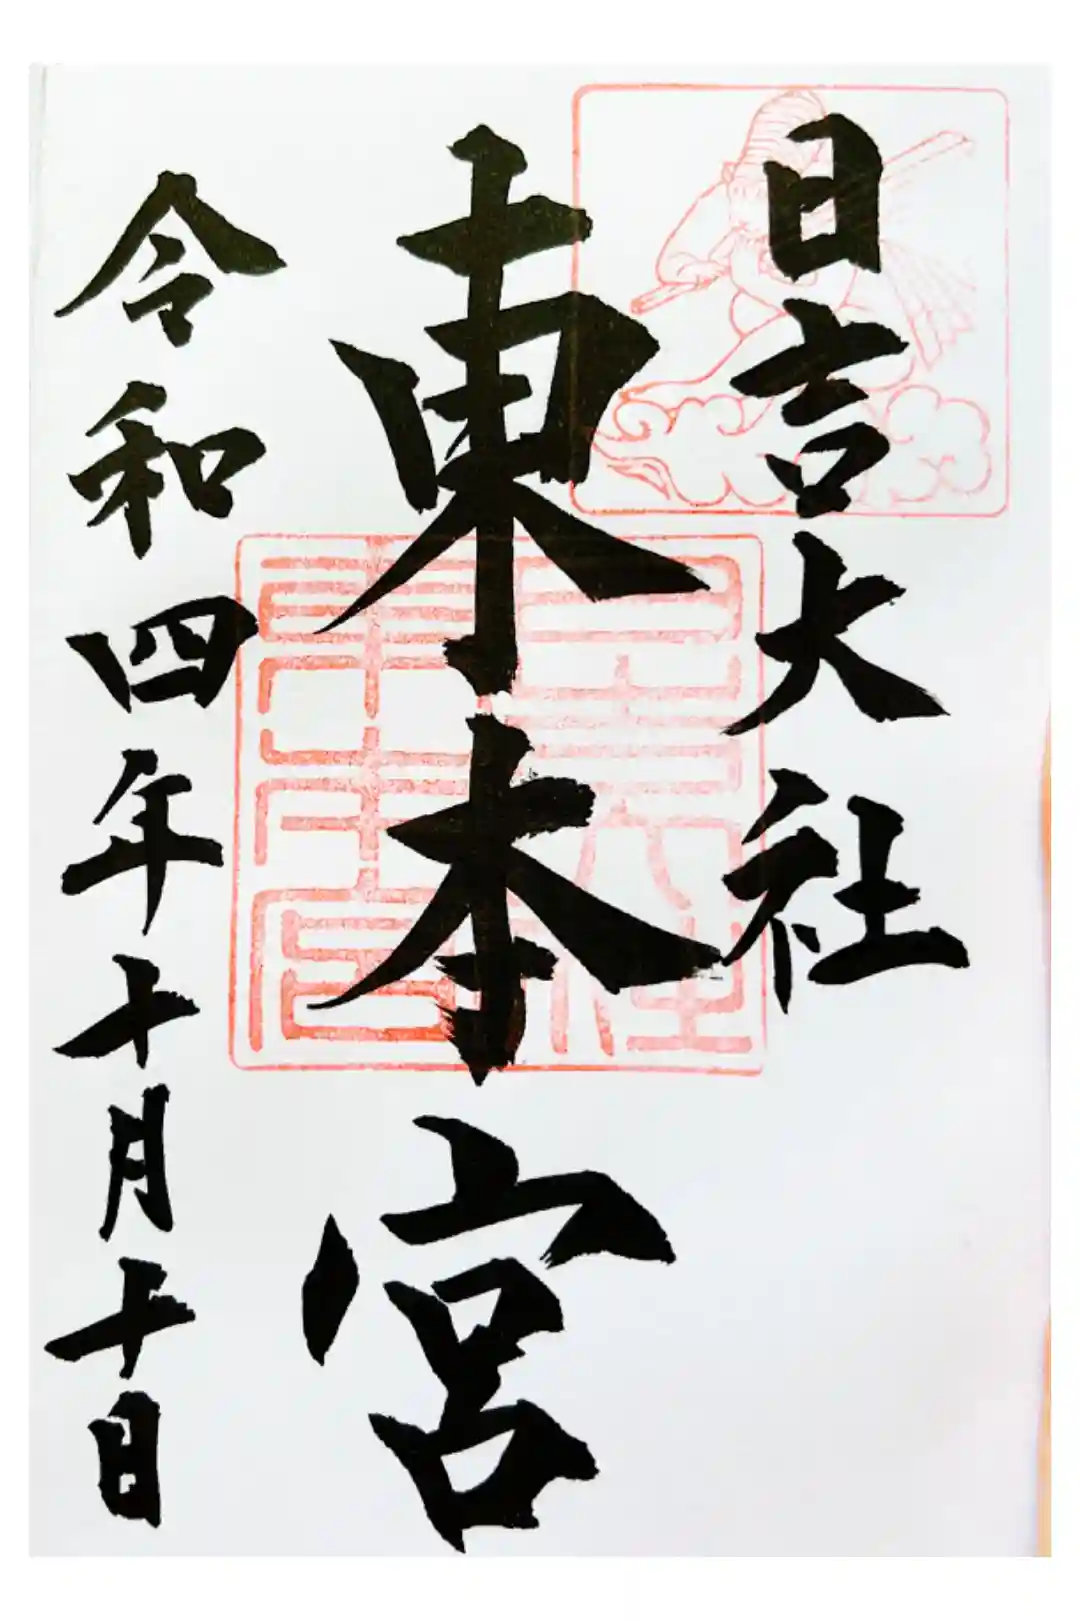 日吉大社
東本宮
令和四年十月十日